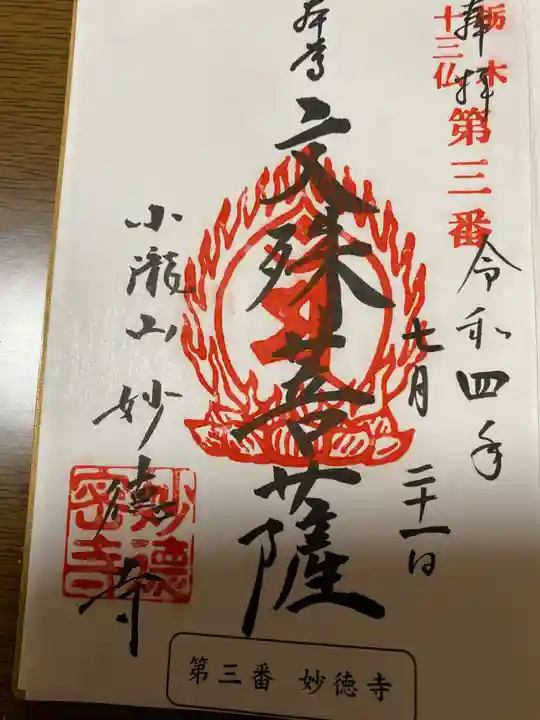 栃木
十三仏
第三番
奉拝
令和四年
七月二十一日
本尊
文殊菩薩
小瀧山妙徳寺
妙徳
密寺
第三番 妙徳寺